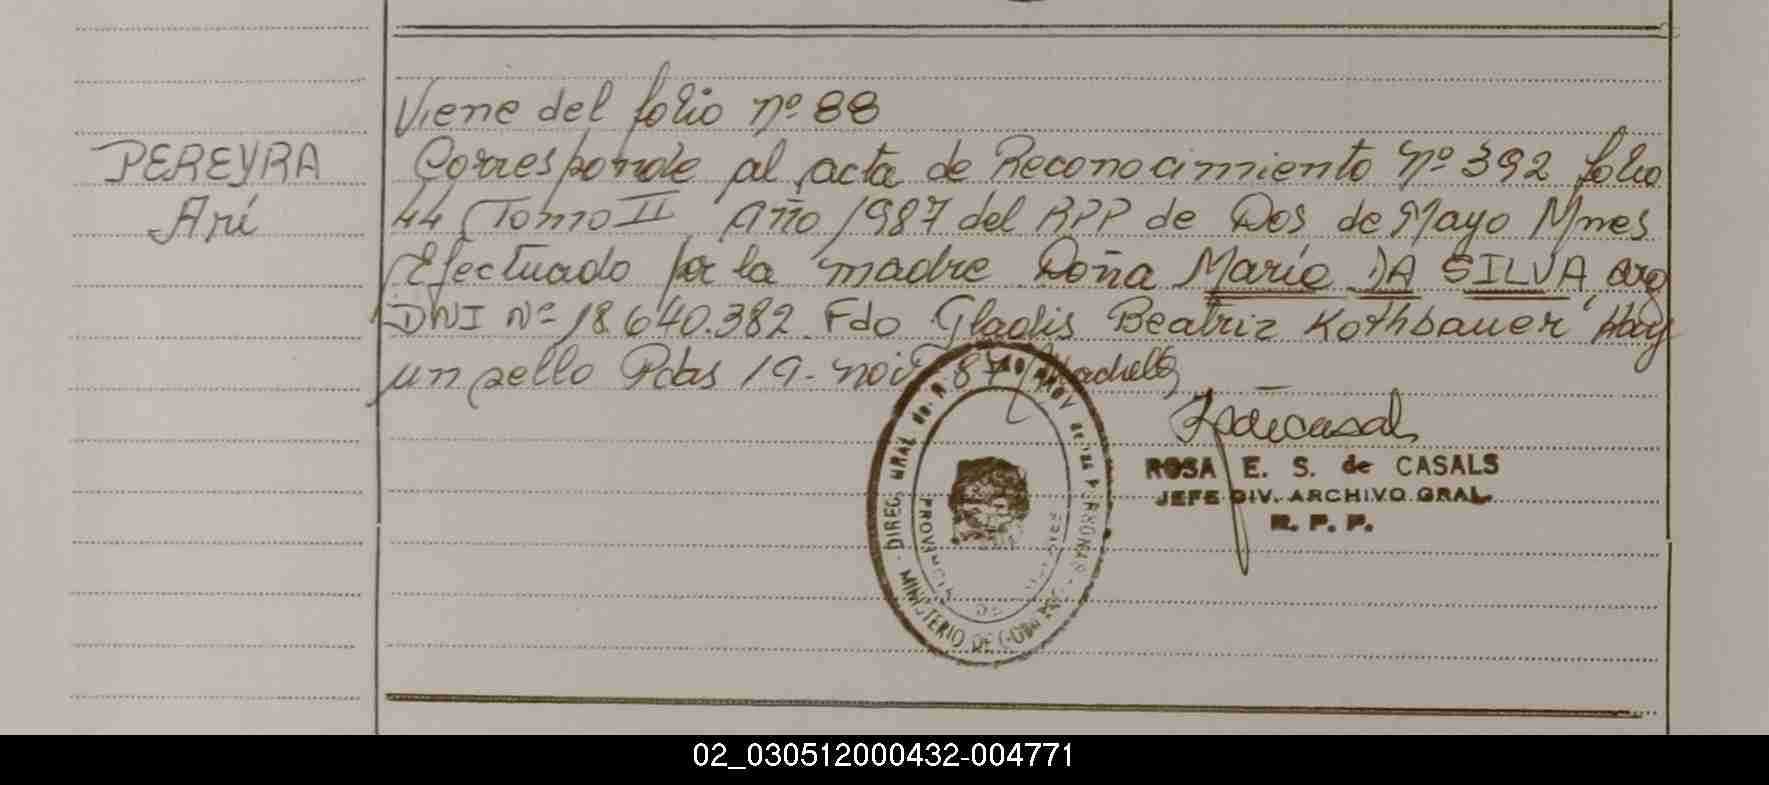 Viene del folio nº 88
PEREYRA
Arí
Corresponde al acta de Reconocimiento Nº 392 folio
44 Tomo II Año 1987 del RPP de Dos de Mayo Mnes
Efectuado por la madre Doña María DA SILVA, arg
DNI Nº 18.640.382. Fdo Gladis Beatriz Kothbauer Hay
un sello Pdas 19-nov 87
ROSA E. S. de CASALS
JEFE DIV. ARCHIVO GRAL.
R. P. P.
DIREC. GRAL de R. de las PERSONAS
MINISTERIO DE GOB.
PROVINCIA DE
02_030512000432-004771